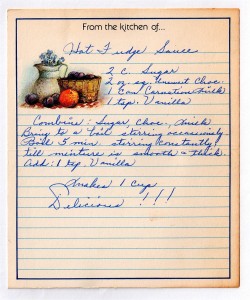 From the kitchen of...
Hot Fudge Sauce
2 C. Sugar
2 oz. sq. Unsweet Choc.
1 Can Carnation Milk
1 tsp. Vanilla
Combine: Sugar, Choc., Milk
Bring to a boil stirring occasionly
Boil 5 min. stirring constantly
till mixture is smooth & thick.
Add: 1 tsp. Vanilla
Makes 1 Cup
Delicious !!!